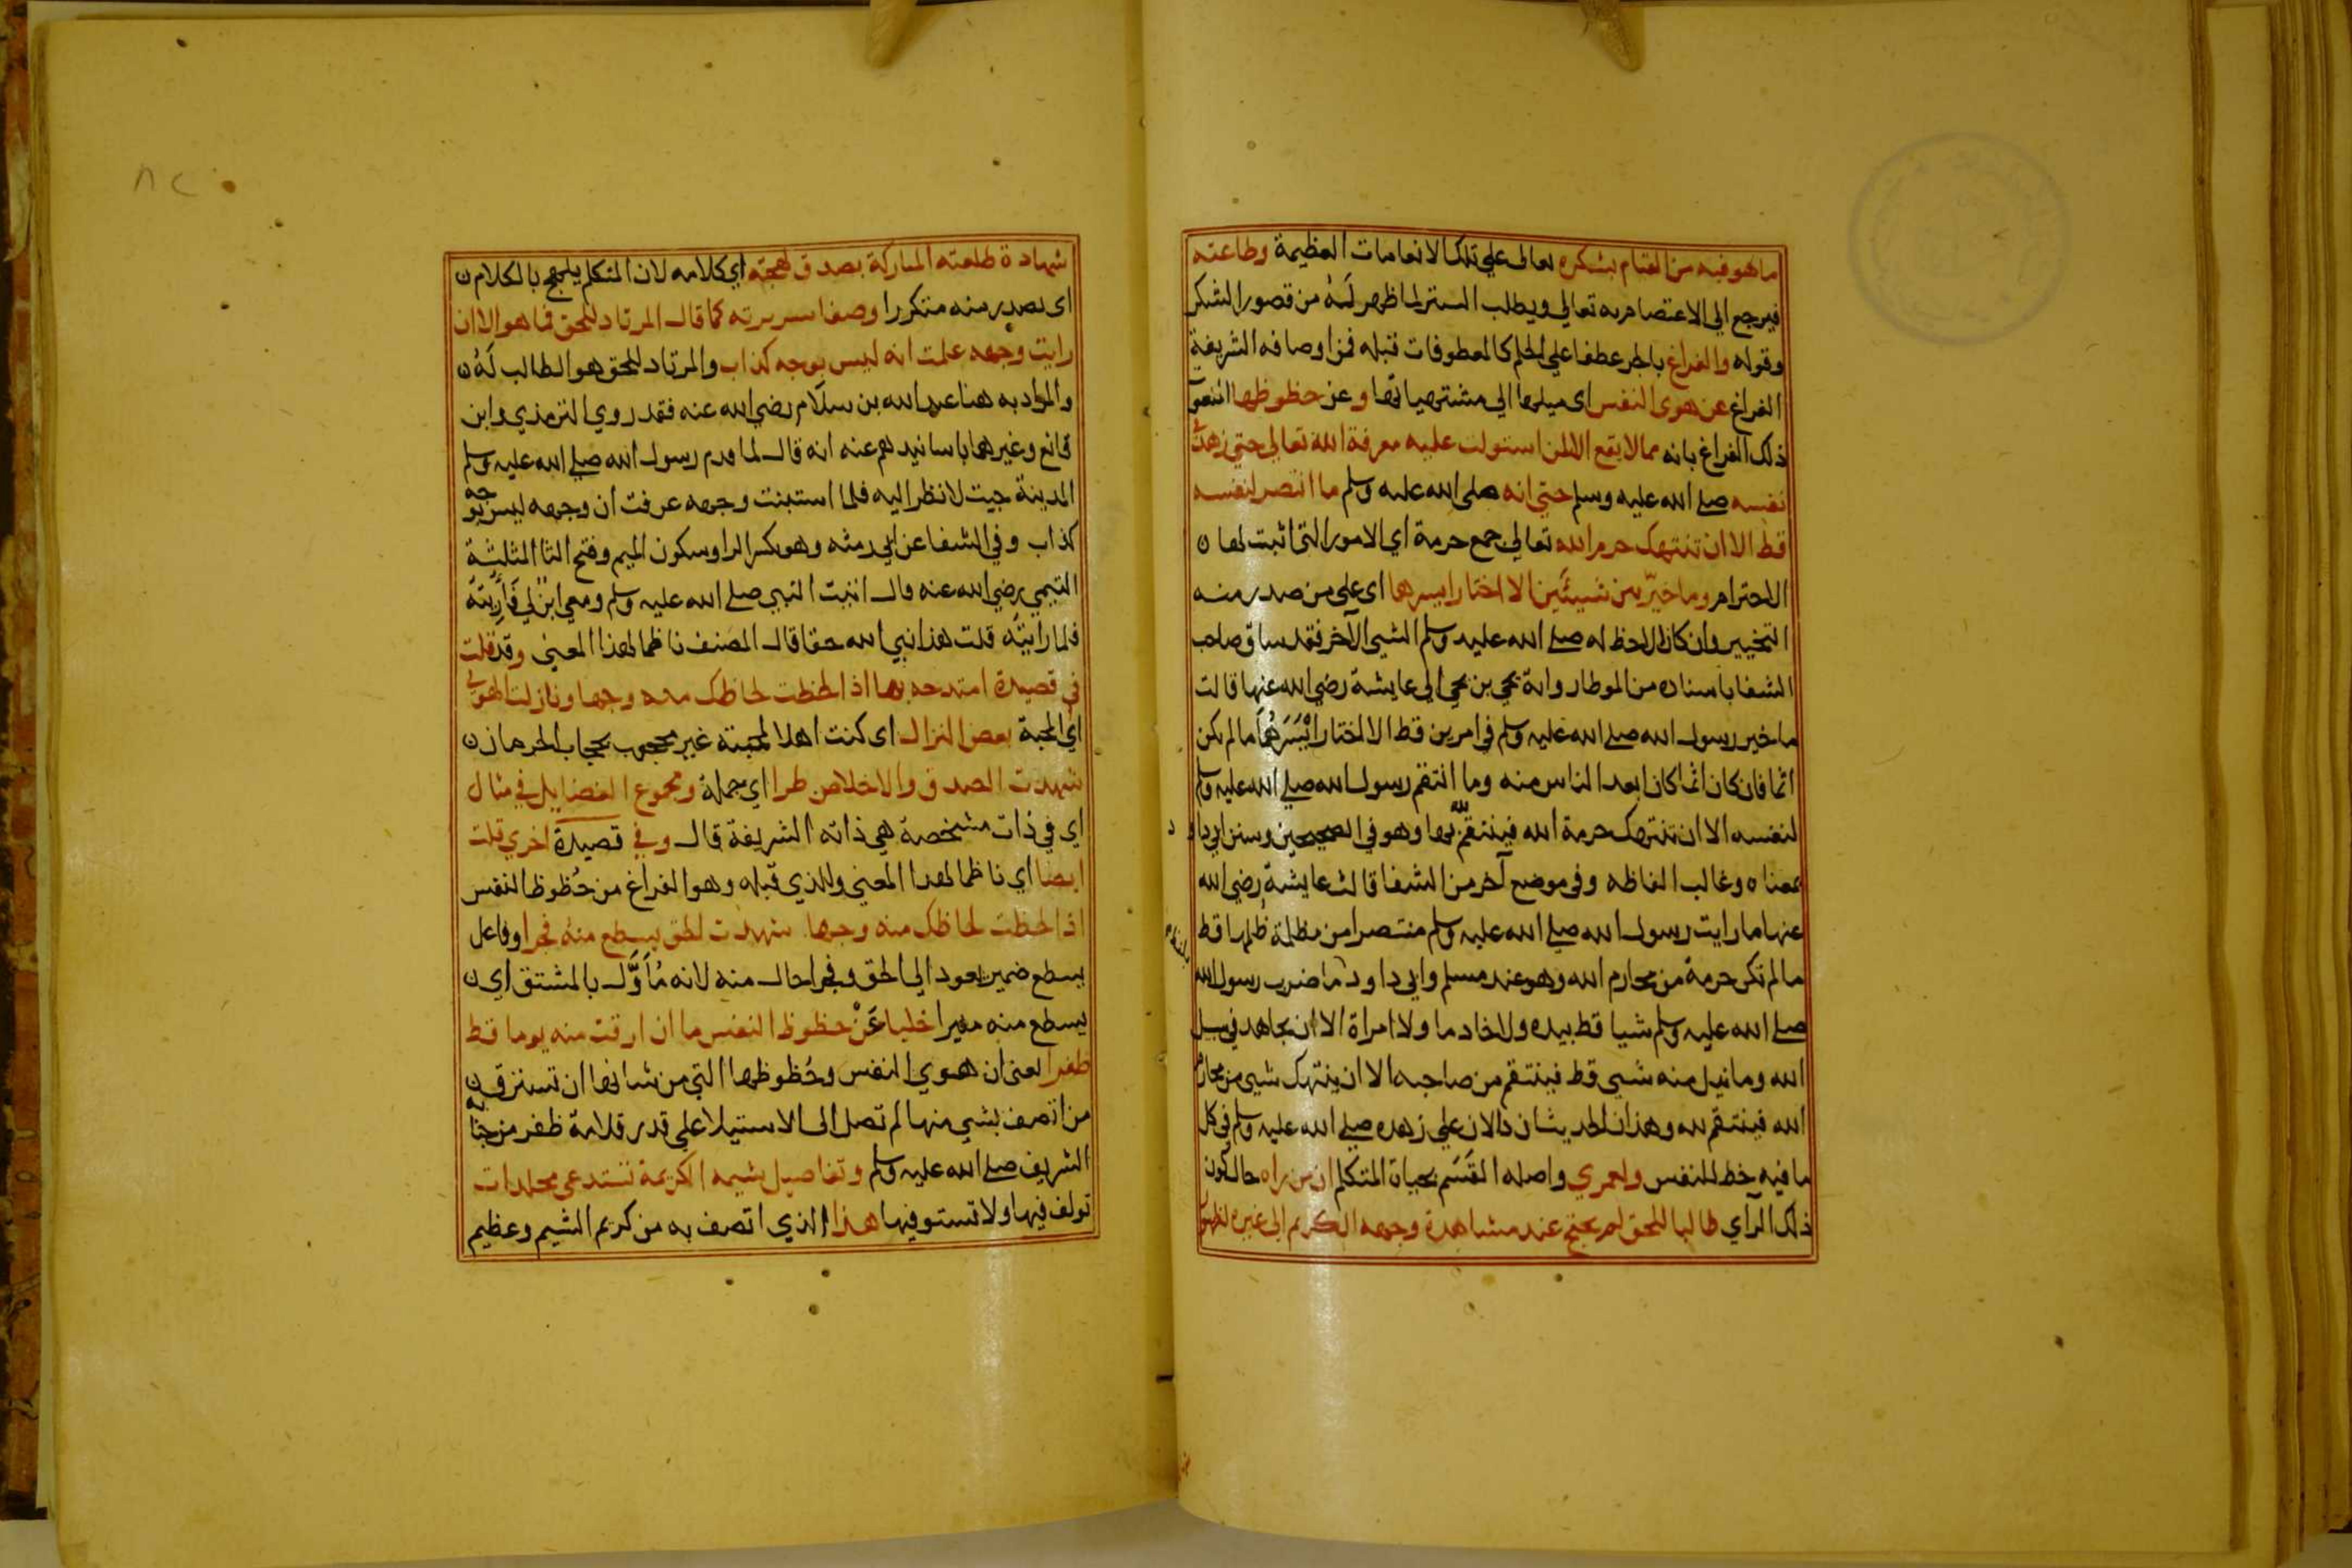 ما هو فيه من القيام بشكره تعالى علي تلك الانعامات العظيمة وطاعته
فيرجع الي الاعتصام به تعالي ويطلب الستر لما ظهر لَهُ من قصور الشكر
وقوله والفراغ بالجر عطفا علي الحلم كالمعطوفات قبله فمن اوصافه الشريفة
الفراغ عن هوى النفس اى ميلها الي مشتهياتها وعن حظوظها
ذلك الفراغ بانه مما لا يقع الا لمن استولت عليه معرفة الله تعالي حتي زهدت
نفسه صلي الله عليه وسلم حتي انه صلي الله عليه وسلم ما انتصر لنفسه
قط الا ان تنتهك حرم الله تعالي جمع حرمة اي الامور التي اثبت لها
الاحترام وما خيّر بين شيئَين الا اختار ايسرها اى علي من صدر منه
التخيير وان كان الاحظ له صلي الله عليه وسلم الشي الآخر فقد ساق صاحب
الشفا باسناده من الموطا رواية يحيي بن يحيي الي عايشة رضي الله عنها قالت
ما خير رسول الله صلي الله عليه وسلم في امرين قط الا اختار ايْسَرَهُمَا ما لم يكن
اثما فان كان اثما كان ابعد الناس منه وما انتقم رسول الله صلي الله عليه وسلم
لنفسه الا ان تنتهك حرمة الله فينتقم لله بها وهو في الصحيحين وسنن ابي داود
بمعناه وغالب الفاظه وفي موضع آخر من الشفا قالت عايشة رضي الله
عنها ما رايت رسول الله صلي الله عليه وسلم منتصرا من مظلمة ظُلمها قط
ما لم تكن حرمة من محارم الله وهو عند مسلم وابي داود ما ضرب رسول الله
صلي الله عليه وسلم شيا قط بيده ولا خادما ولا امراة الا ان يجاهد في سبيل
الله وما نيل منه شي قط فينتقم من صاحبه الا ان ينتهك شي من محارم
الله فينتقم لله وهذان الحديثان دالان علي زهده صلي الله عليه وسلم في كل
ما فيه حظ للنفس ولعمري واصله القَسَم بحياة المتكلم ان من راه حال كون
ذلك الرآي طالبا للحق لم يحتج عند مشاهدة وجهه الكريم الى غيره
شهادة طلعته المباركة بصدق لهجته اي كلامه لان المتكلم يلهج بالكلام
اى يصدر منه متكررا وصفا سريرته كما قال المرتاد للحق فما هو الا ان
رايت وجهه علمت انه ليس بوجه كذاب والمرتاد للحق هو الطالب لَهُ
والمراد به هنا عبد الله بن سلَام رضي الله عنه فقد روي الترمذي وابن
قانع وغيرهما باسانيدهم عنه انه قال لما قدم رسول الله صلي الله عليه وسلم
المدينة جيت لانظر اليه فلما استبنت وجهه عرفت ان وجهه ليس بوجه
كذاب وفي الشفا عن ابي رمثه وهو بكسر الرا وسكون الميم وفتح الثا المثلثة
التيمي رضي الله عنه قال اتيت النبي صلي الله عليه وسلم ومعي ابن لي فَأُرِيتُهُ
فلما رايتُه قلت هذا نبي الله حقا قال المصنف ناظما لهذا المعني وقد قلت
في قصيدة امتدحه بها اذا لحظت لحاظك منه وجها ونازلت الهوي
اي المحبة بعض النزال اى كنت اهلا لمحبته غير محجوب بحجاب الحرمان
شهدت الصدق والاخلاص طرا اي جملة ومجموع الفضايل في مثال
اي في ذات مشخصة هي ذاته الشريفة قال وفي قصيدة اخري قلت
ايضا اي ناظما لهذا المعني والذي قبله وهو الفراغ من حُظوظ النفس
اذا لحظت لحاظك منه وجها شهدت الحق يسطع منه فجرا وفاعل
يسطع ضمير يعود الي الحق وفجرا حال منه لانه مُأوَّل بالمشتق اي
يسطع منه منيرا خليا عَنْ حظوظ النفس ما ان ارقت منه يوما قط
ظفرا يعني ان هوي النفس وحُظوظها التي من شانها ان تسترق
من اتصف بشي منها لم تصل الى الاستيلا علي قدر قلامة ظفر من جنابه
الشريف صلي الله عليه وسلم وتفاصيل شيمه الكريمة تستدعي مجلدات
تولف فيها ولا تستوفيها هذا الذي اتصف به من كريم الشيم وعظيم